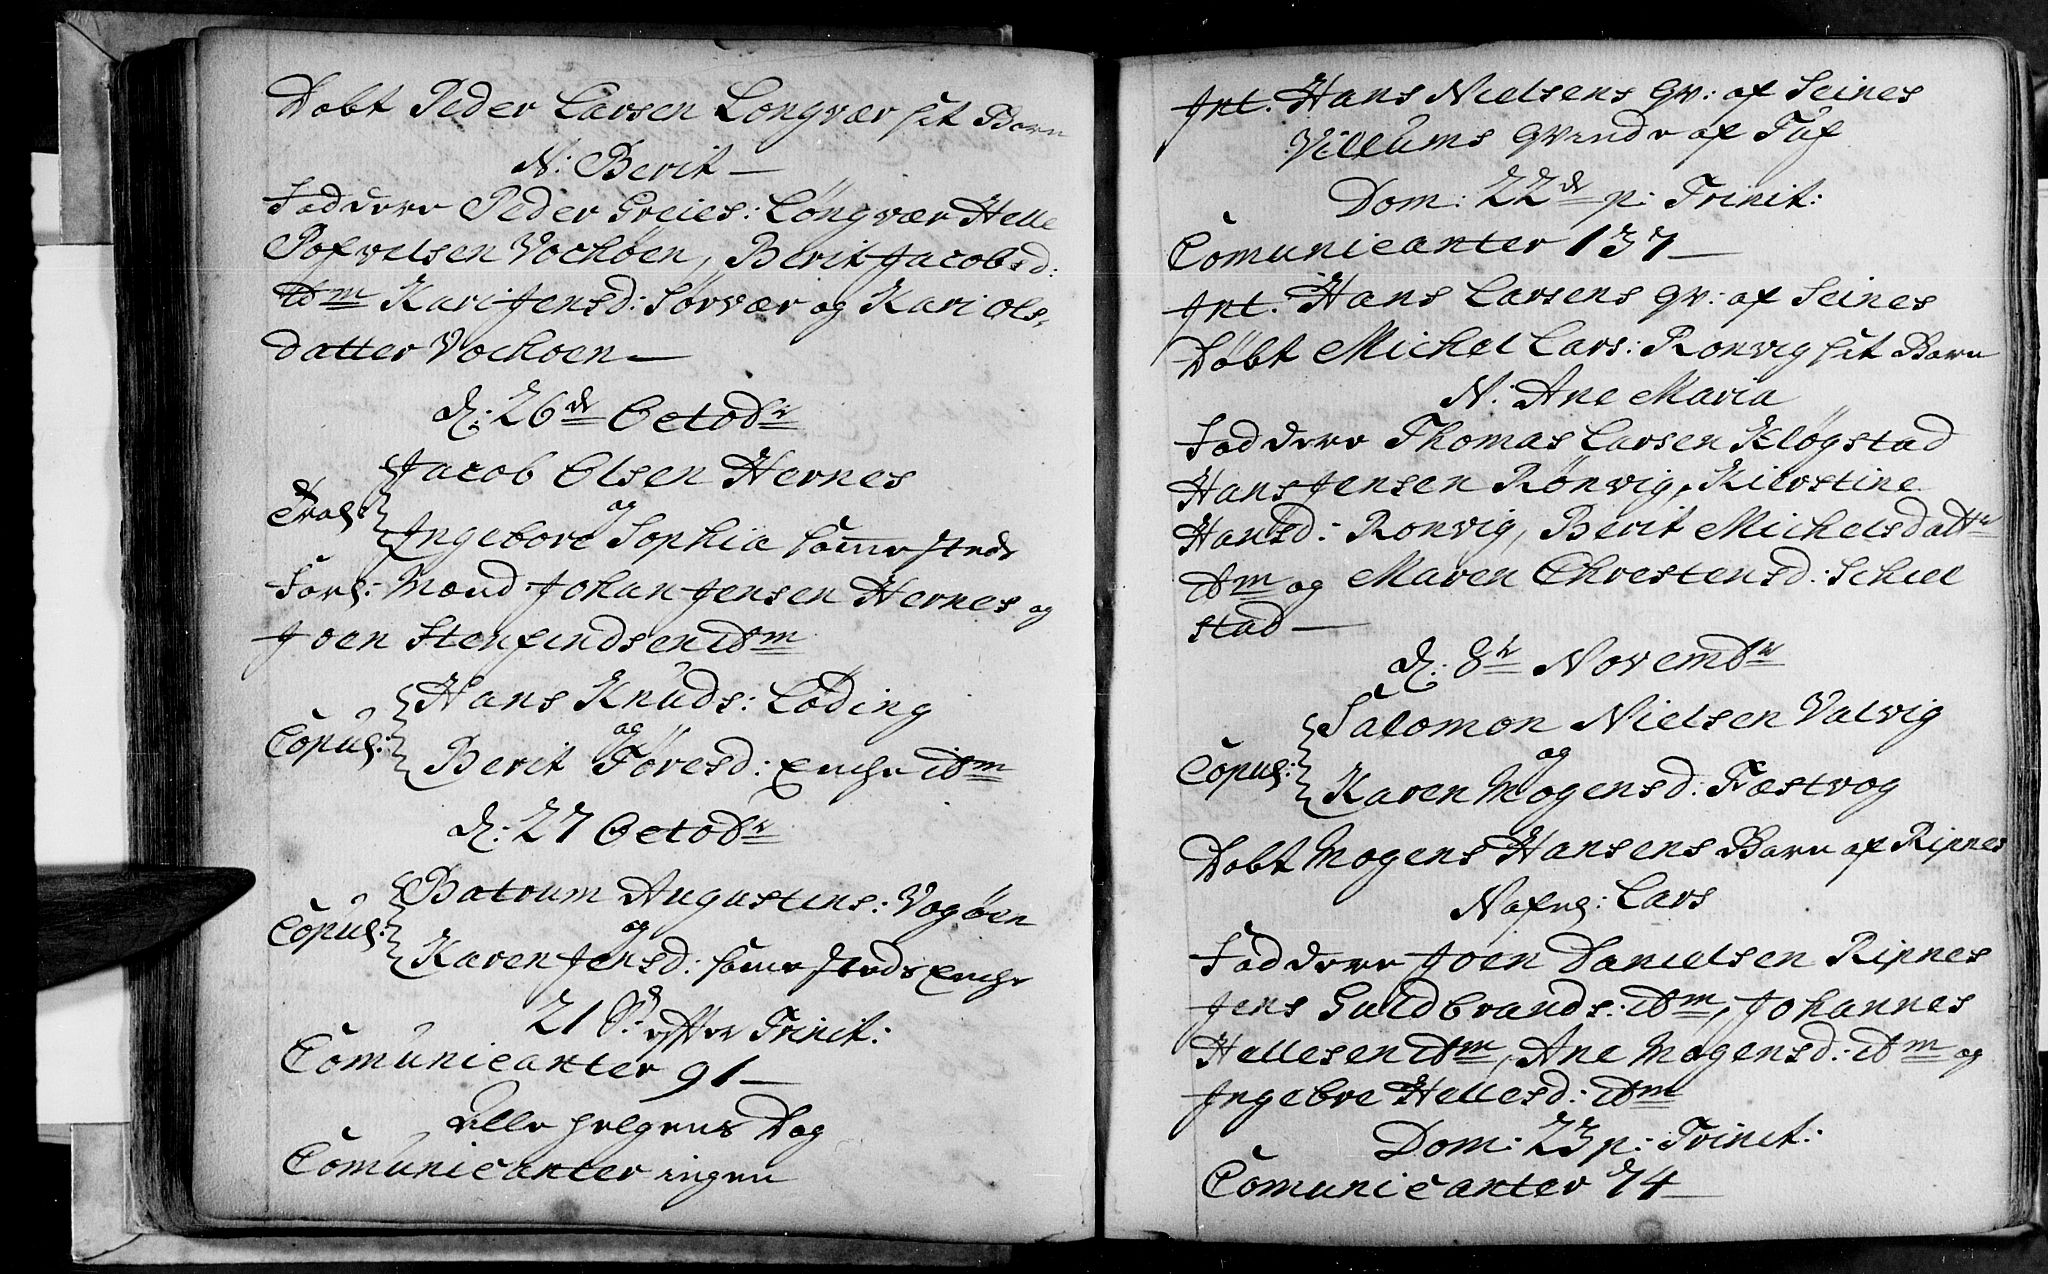 Døbt Peder Larsen Longvær sit Barn
N: Berit —
Faddere Peder Greies: Løngvær Helle
Pofvelsen Vochøen, Berit Jacobsd:
ibm Kari Jensd: Sørvær og Kari Ols-
datter Vochoen —
d: 26de Octobr
Jacob Olsen Hernes
Trol: og
Ingebore Sophia samme steds
Forl: Mænd Johan Jensen Hernes og
Joen Stenfindsen ibm
Hans Knuds: Løding
Copul: og
Berit Tóresd: Enche ibm
d: 27 Octobr
Batrum Augustins: Vogøen
Copul: og
Karen Jensd: same steds Enche
21 S: efter Trinit:
Comunicanter 91 —
Alle helgens Dag
Comunicanter ingen
Int. Hans Nielsens qv: af Seines
Villums qvinde af Tuf
Dom: 22de p: Trinit:
Comunicanter 137 —
Int. Hans Larsens qv: af Seines
Døbt Michel Lars: Ronvig sit Barn
N: Ane Maria
Faddere Thomas Larsen Kløgstad
Hans Jensen Rønvig, Kierstine
Hansd: Ronvig, Berit Michelsdattr
ibm og Maren Chrestensd: Schiel
stad —
d: 8de Novembr
Salomon Nielsen Valvig
Copul: og
Karen Mogensd: Fæstvog
Døbt Mogens Hansens Barn af Ripnes
Nafnl: Lars
Faddere Joen Danielsen Ripnes
Jens Guldbrands: ibm, Johannes
Hellesen ibm, Ane Mogensd: ibm og
Ingebre Hellesd: ibm
Dom: 23 p: Trinit:
Comunicanter 74 —